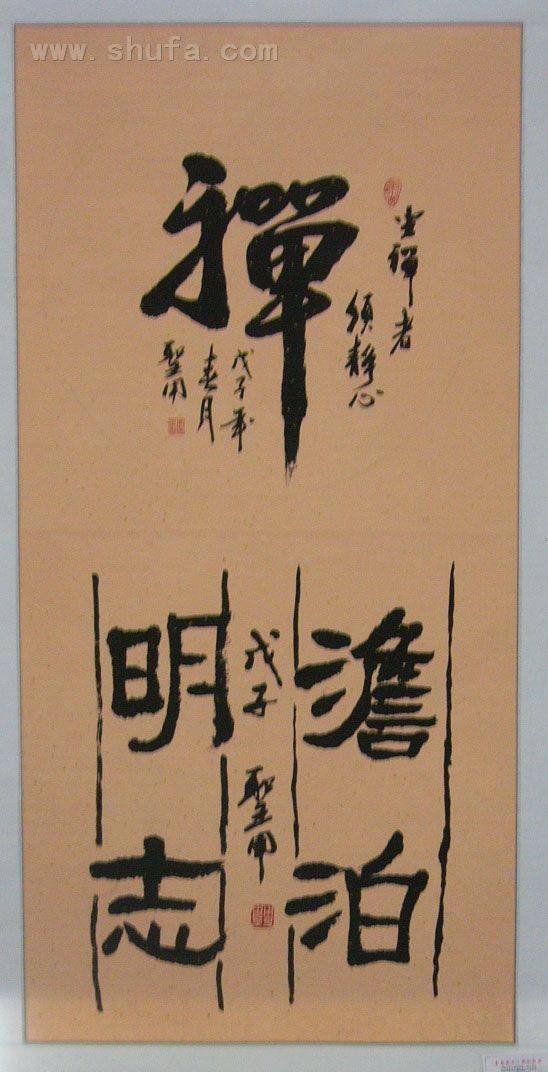 www.shufa.com
禪
坐禪者
須靜心
戊子年
春月
聖用
澹泊
明志
戊子
聖用